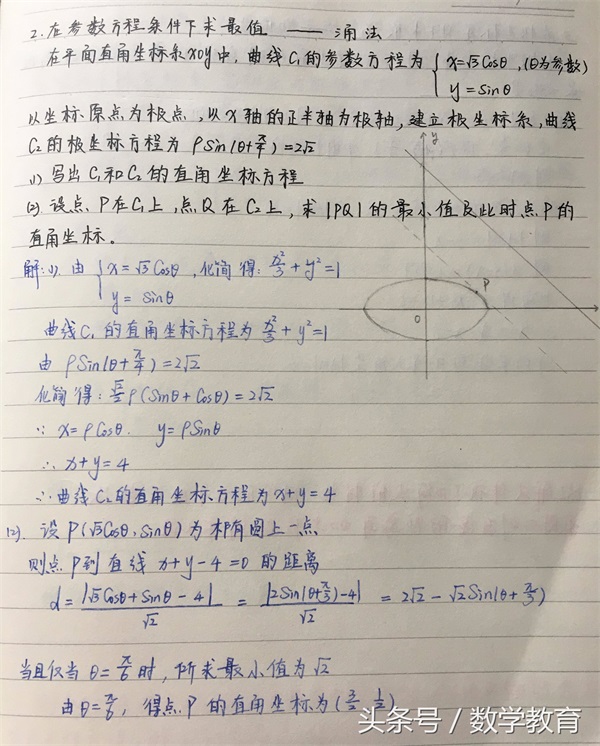 2. 在参数方程条件下求最值 —— 消法
在平面直角坐标系xoy中, 曲线C₁的参数方程为 { x=√3Cosθ , (θ为参数)
y=Sinθ
以坐标原点为极点, 以X轴的正半轴为极轴, 建立极坐标系, 曲线
C₂的极坐标方程为 ρSin(θ+π/4)=2√2
(1) 写出C₁和C₂的直角坐标方程
(2) 设点P在C₁上, 点Q在C₂上, 求|PQ|的最小值及此时点P的
直角坐标。
y
P
O
解:(1). 由 { x=√3Cosθ , 化简得: x²/3+y²=1
y= Sinθ
曲线C₁的直角坐标方程为 x²/3+y²=1
由 ρSin(θ+π/4)=2√2
化简得: √2/2ρ(Sinθ+Cosθ)=2√2
∵ x=ρCosθ. y=ρSinθ
∴ x+y=4
∴曲线C₂的直角坐标方程为x+y=4
(2). 设P(√3Cosθ, Sinθ)为椭圆上一点
则点P到直线 x+y-4=0 的距离
d=|√3Cosθ+Sinθ-4|/√2 = |2Sin(θ+π/3)-4|/√2 = 2√2-√2Sin(θ+π/3)
当且仅当θ=π/6时, 所求最小值为√2
由θ=π/6, 得点P的直角坐标为(3/2, 1/2)
头条号 / 数学教育